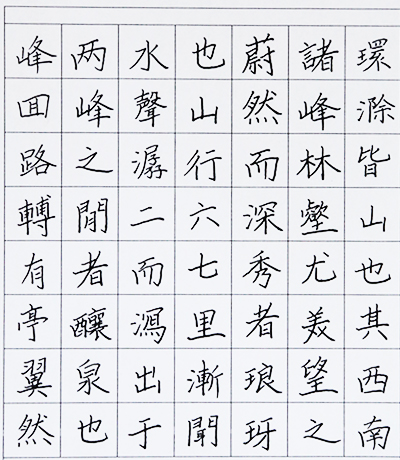 環滁皆山也其西南
諸峰林壑尤美望之
蔚然而深秀者琅玡
也山行六七里漸聞
水聲潺二而瀉出于
两峰之間者釀泉也
峰囬路轉有亭翼然